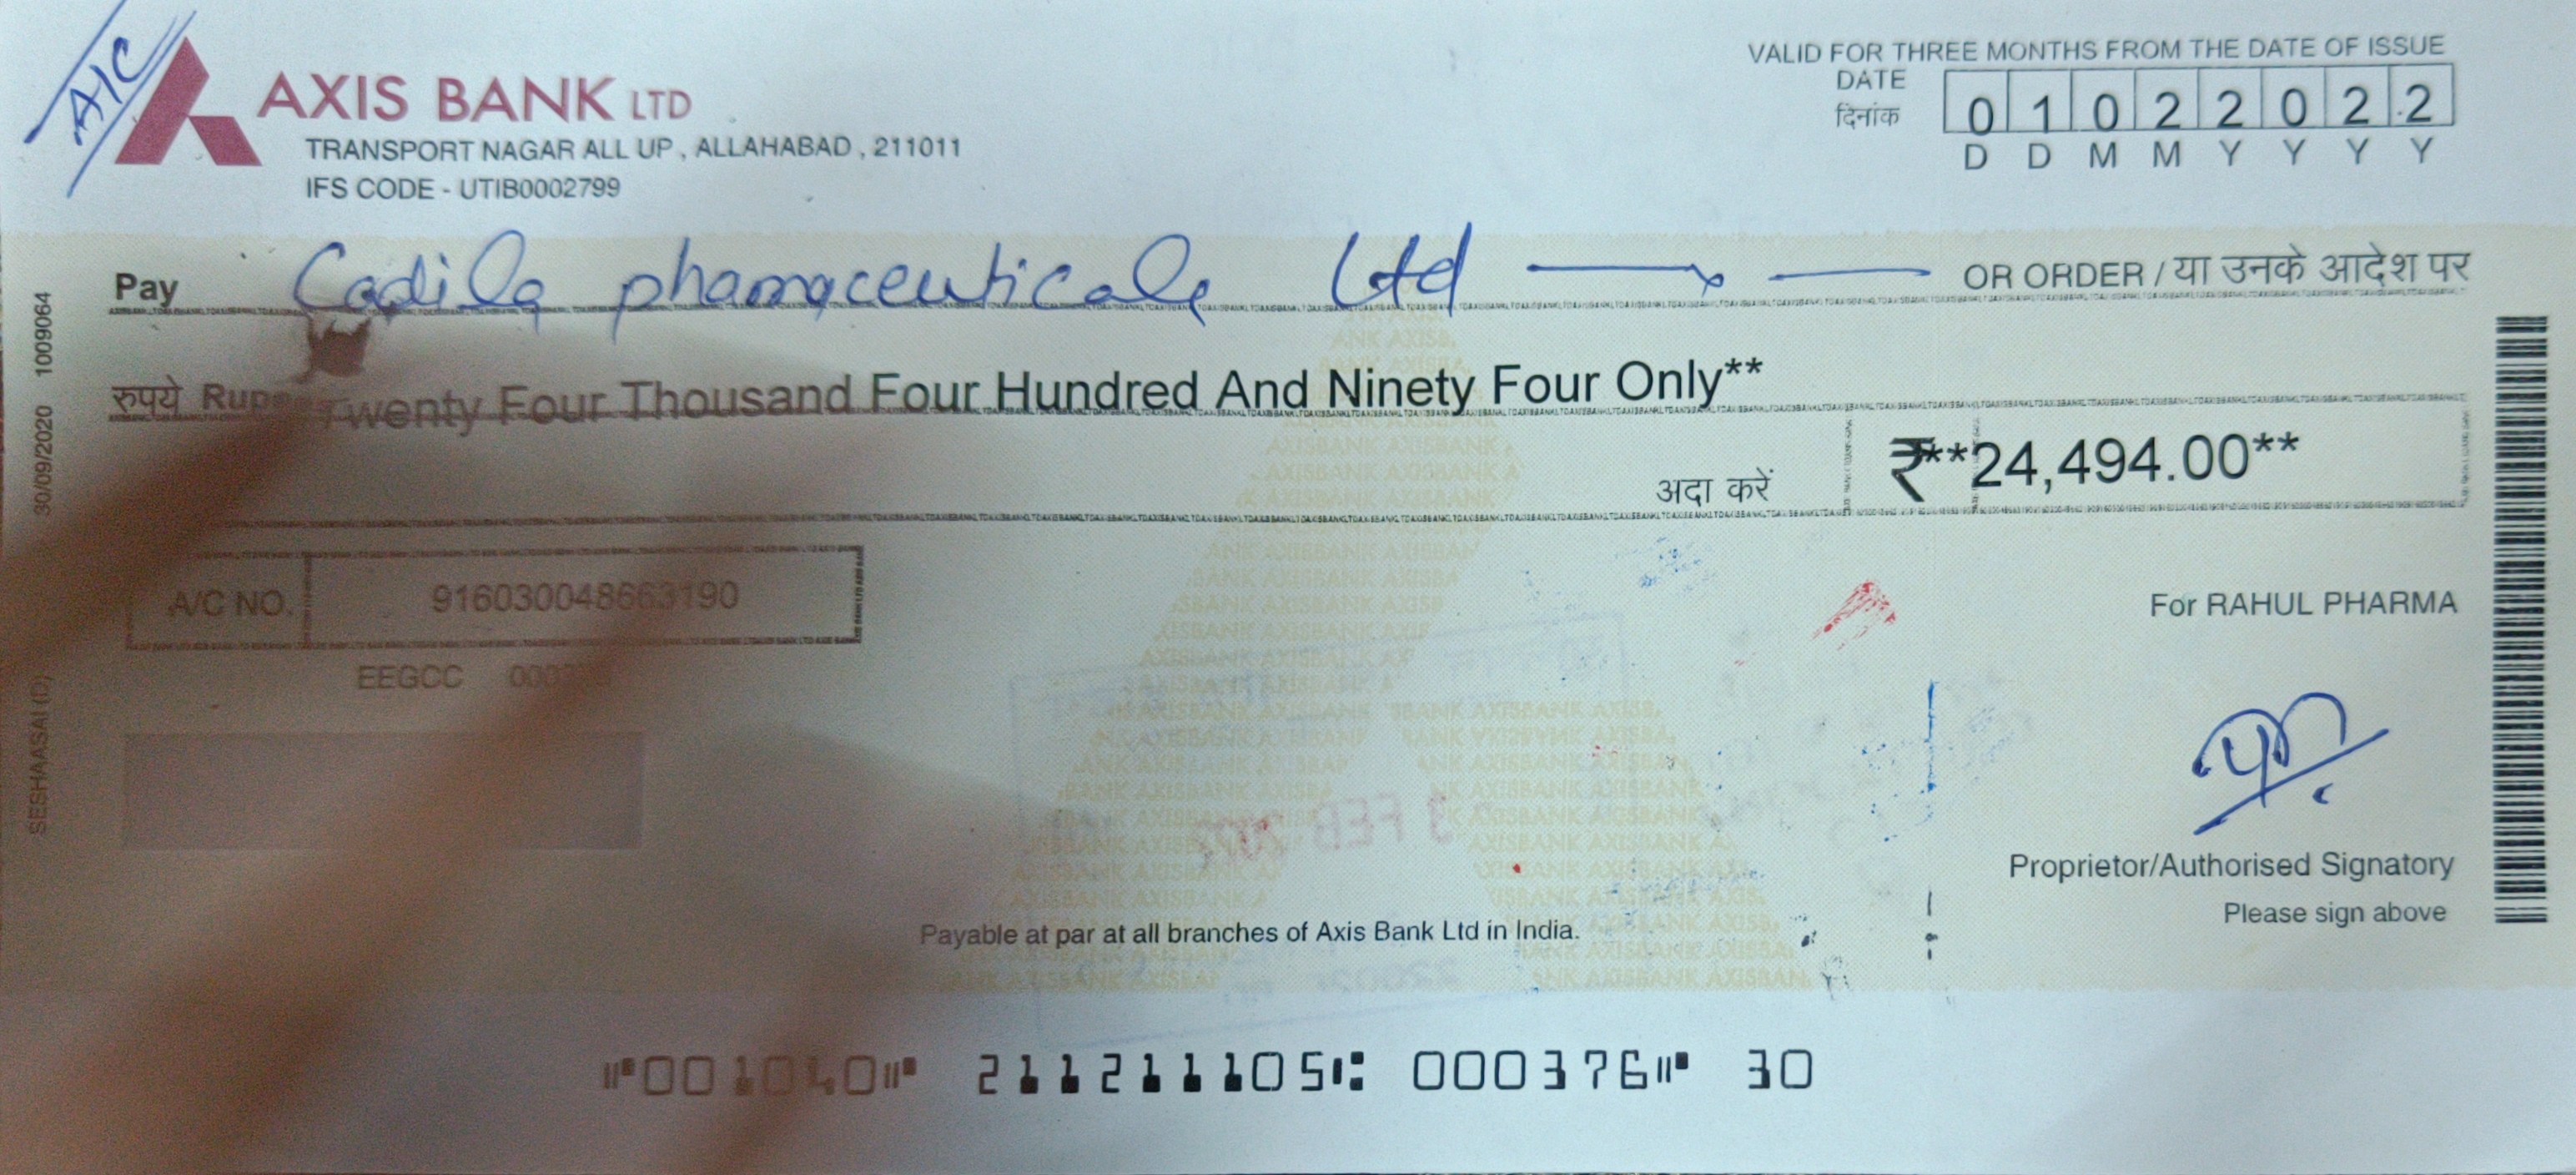 A/C
AXIS BANK LTD
TRANSPORT NAGAR ALL UP , ALLAHABAD , 211011
IFS CODE - UTIB0002799
VALID FOR THREE MONTHS FROM THE DATE OF ISSUE
DATE
दिनांक
0 1 0 2 2 0 2 2
D D M M Y Y Y Y
Pay Cadila phamaceuticals Ltd OR ORDER / या उनके आदेश पर
रुपये Twenty Four Thousand Four Hundred And Ninety Four Only**
अदा करें ₹**24,494.00**
A/C NO. 916030048663190
EEGCC
For RAHUL PHARMA
Proprietor/Authorised Signatory
Please sign above
Payable at par at all branches of Axis Bank Ltd in India.
⑈001040⑈ 211211105⑆ 000376⑈ 30
SESHAASAI (D) 30/09/2020 1009064